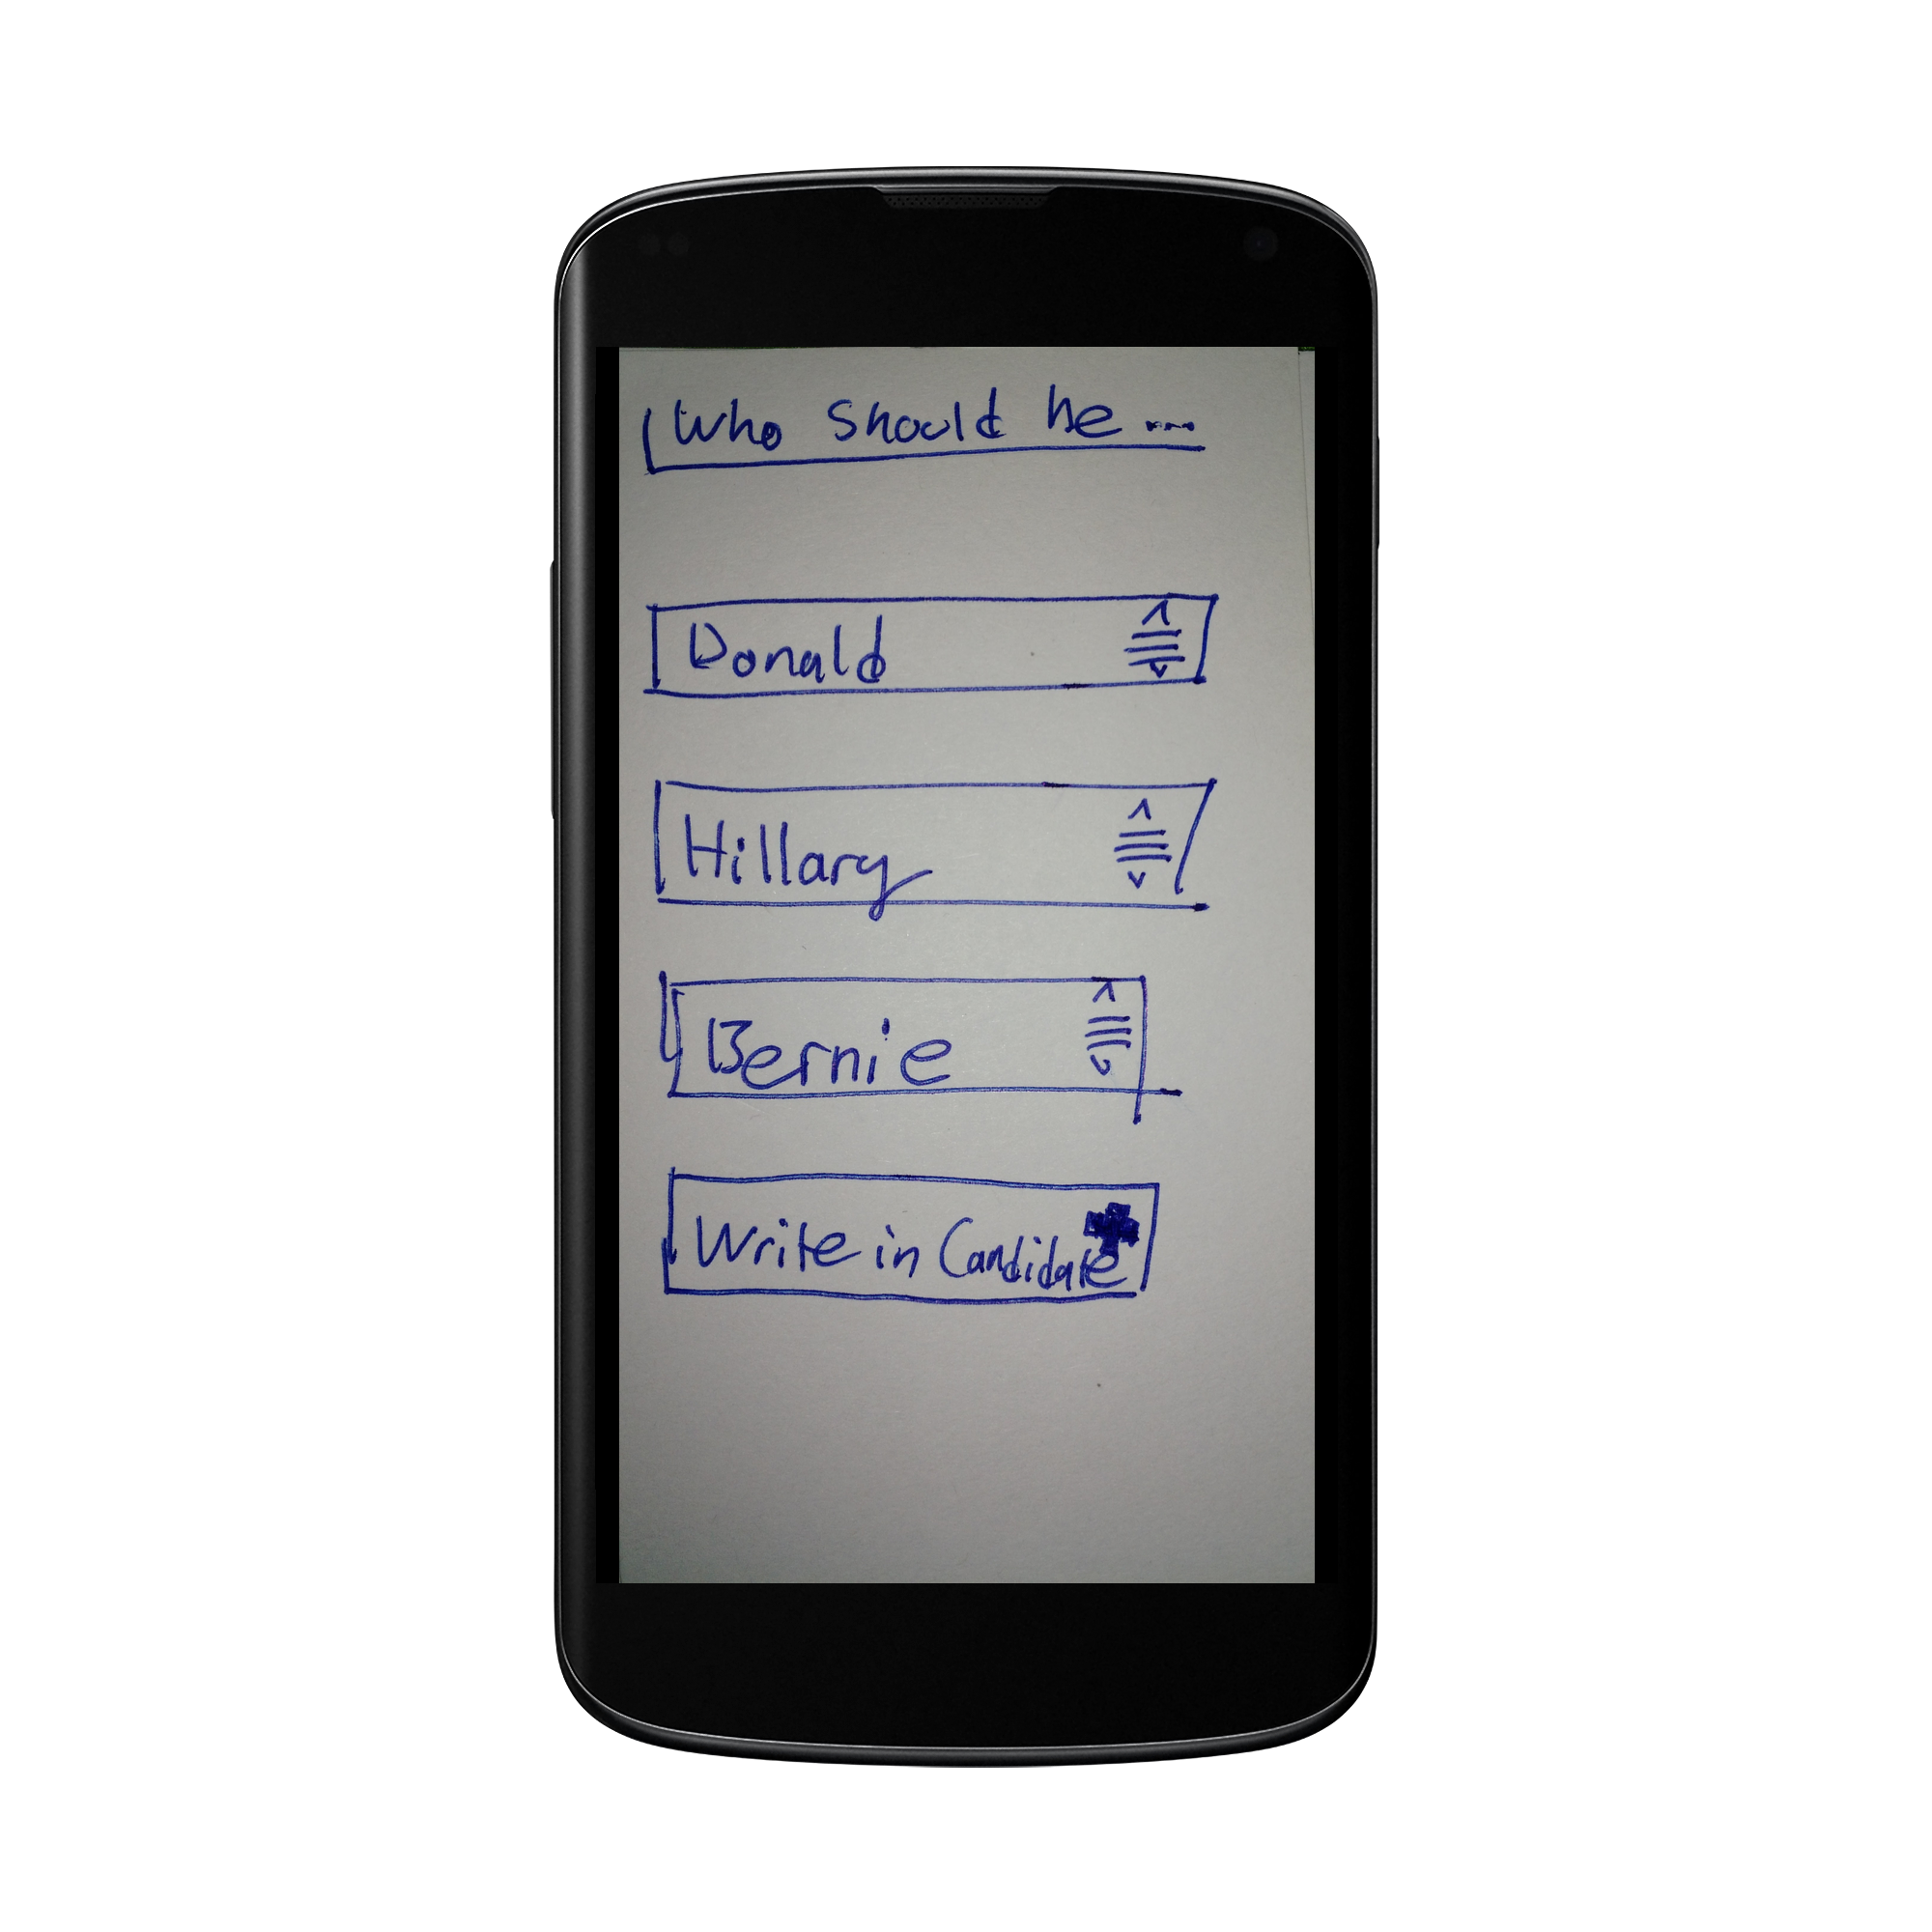 Who Should be ...
Donald
Hillary
Bernie
Write in Candidate